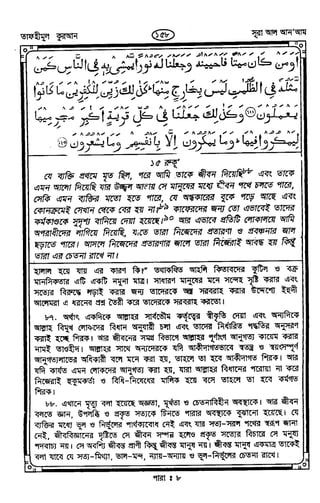 তাফহীমুল কুরআন
১৫৮
সূরা আল আন'আম
أَوَمَنْ كَانَ مَيْتًا فَأَحْيَيْنَٰهُ وَجَعَلْنَا لَهُ نُورًا يَمْشِي بِهِ فِي النَّاسِ كَمَنْ
مَّثَلُهُ فِي الظُّلُمَٰتِ لَيْسَ بِخَارِجٍ مِّنْهَا كَذَٰلِكَ زُيِّنَ لِلْكَٰفِرِينَ مَا كَانُوا
يَعْمَلُونَ ﴿١٢٢﴾ وَكَذَٰلِكَ جَعَلْنَا فِي كُلِّ قَرْيَةٍ أَكَٰبِرَ مُجْرِمِيهَا
لِيَمْكُرُوا فِيهَا وَمَا يَمْكُرُونَ إِلَّا بِأَنفُسِهِمْ وَمَا يَشْعُرُونَ ﴿١٢٣﴾
১৫ রুকু'
যে ব্যক্তি প্রথমে মৃত ছিল, পরে আমি তাকে জীবন দিয়েছি৮৮ এবং তাকে
এমন আলো দিয়েছি যার উজ্জ্বল আভায় সে মানুষের মধ্যে জীবন পথে চলতে পারে,
সেকি এমন ব্যক্তির মতো হতে পারে, যে অন্ধকারের বুকে পড়ে আছে এবং
কোনক্রমেই সেখান থেকে বের হয় না?৮৯ কাফেরদের জন্য তো এভাবেই তাদের
কর্মকাণ্ডকে সুদৃশ্য বানিয়ে দেয়া হয়েছে।৯০ আর এভাবে প্রতিটি লোকালয়ে আমি
অপরাধীদের লাগিয়ে দিয়েছি, যেতে তারা নিজেদের প্রতারণা ও প্রবঞ্চনার জাল
ছড়াতে পারে। আসলে নিজেদের প্রতারণার জালে তারা নিজেরাই আবদ্ধ হয় কিন্তু
তারা এর চেতনা রাখে না।
হালাল হয়ে যায় এর কারণ কি।" তথাকথিত আহলি কিতাবদের কুটিল ও বক্র
মানসিকতার এটি একটি নমুনা মাত্র। সাধারণ মানুষের মনে সন্দেহ সৃষ্টি করার এবং
সত্যের বিরুদ্ধে লড়াই করার জন্য তাদেরকে অস্ত্র সরবরাহ করার উদ্দেশ্যে ইহুদী
আলেমরা এ ধরনের প্রশ্ন তৈরী করে তাদেরকে সরবরাহ করতো।
৮৭. অর্থাৎ একদিকে আল্লাহর সার্বভৌম কর্তৃত্বের স্বীকৃতি দেয়া এবং অন্যদিকে
আল্লাহ বিমুখ লোকদের বিধান অনুযায়ী চলা এবং তাদের নির্ধারিত পদ্ধতির অনুসরণ
করাই হচ্ছে শিরক। আর জীবনের সমগ্র বিভাগে আল্লাহর পূর্ণাংগ আনুগত্য কায়েম করার
নামই তাওহীদ। আল্লাহর সাথে অন্যদেরকে যদি আকীদাগতভাবে স্বতন্ত্র ও স্বয়ংসম্পূর্ণ
আনুগত্যলাভের অধিকারী বলে মনে করা হয়, তাহলে তা হবে আকীদাগত শিরক। আর
যদি কার্যত এমন লোকদের আনুগত্য করা হয়, যারা আল্লাহর বিধানের পরোয়া না করে
নিজেরাই হুকুমকর্তা ও বিধি-নিষেধের মালিক হয়ে বসে তাহলে তা হবে কর্মগত
শিরক।
৮৮. এখানে মৃত্যু বলা হয়েছে অজ্ঞতা, মূর্খতা ও চেতনাবিহীন অবস্থাকে। আর জীবন
বলতে জ্ঞান, উপলব্ধি ও প্রকৃত সত্যকে চিনতে পারার অবস্থাকে বুঝানো হয়েছে। যে
ব্যক্তির মধ্যে ভুল ও নির্ভুলের পার্থক্যবোধ নেই এবং যার সত্য-সরল পথের স্বরূপ জানা
নেই, জীববিজ্ঞানের দৃষ্টিতে সে জীবন সম্পন্ন হলেও প্রকৃত সত্যের বিচারে সে মনুষ্য
পদবাচ্য নয়। সে অবশ্যি জীবন্ত প্রাণী কিন্তু জীবন্ত মানুষ নয়। জীবন্ত মানুষ একমাত্র তাকেই
বলা যাবে যে সত্য-মিথ্যা, ভাল-মন্দ, ন্যায়-অন্যায় ও ভুল-নির্ভুলের চেতনা রাখে।
পারা : ৮